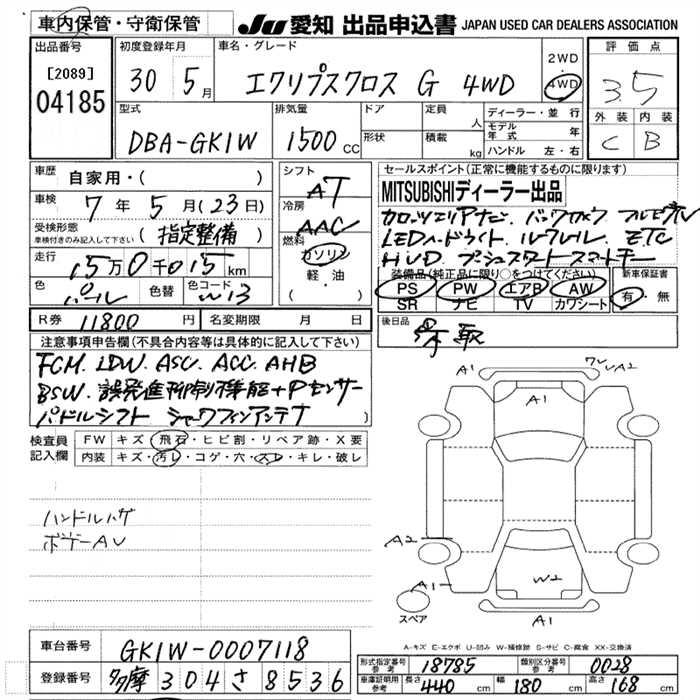 車内保管・守衛保管 JU 愛知 出品申込書 JAPAN USED CAR DEALERS ASSOCIATION
出品番号 初度登録年月 車名・グレード 2WD 評価点
[2089] 30 5月 エクリプスクロス G 4WD 4WD 3.5
04185 型式 排気量 ドア 定員 人 ディーラー・並行 外装 内装
DBA-GK1W 1500cc 形状 積載 kg モデル年式 年 C B
ハンドル 左・右
車歴 自家用・( ) シフト AT セールスポイント(正常に機能するものに限ります)
車検 7年 5月(23日) 冷房 AAC MITSUBISHIディーラー出品
受検形態 車検付きのみ記入して下さい (指定整備) 燃料 ガソリン 軽・油 カロッツェリアナビ、バックカメラ フルセグTV
走行 15万0千015km LEDヘッドライト ルーフレール ETC
HUD プッシュスタート スマートキー
色 パール 色替 色コード W13 装備品(純正品に限り○をつけてください) 新車保証書
PS PW エアB AW 有・無
SR ナビ TV カワシート
R券 11800円 名変期限 月 日 後日品
注意事項申告欄(不具合内容等は具体的に記入して下さい)
FCM. LDW. ASC. ACC. AHB
BSW. 誤発進抑制機能+Pセンサー
パドルシフト シャークフィンアンテナ
検査員記入欄 FW キズ・飛石・ヒビ割・リペア跡・X要
内装 キズ・汚レ・コゲ・穴・スレ・キレ・破レ
ハンドルハゲ
ボデーAU
A1 A1 ワレ A2
A2 A1 W2 A1
スペア
A-キズ E-エクボ U-凹み W-補修跡 S-サビ C-腐食 XX-交換済
車台番号 GK1W-0007118
登録番号 多摩 304 さ 8536
形式指定番号 参考 18785 類別区分番号 参考 0028
車庫証明用 参考 長さ 440cm 幅 180cm 高さ 168cm